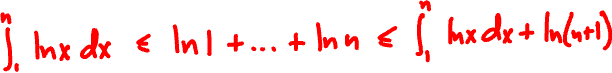 ∫₁ⁿ ln x dx ≤ ln 1 + ... + ln n ≤ ∫₁ⁿ ln x dx + ln(n+1)